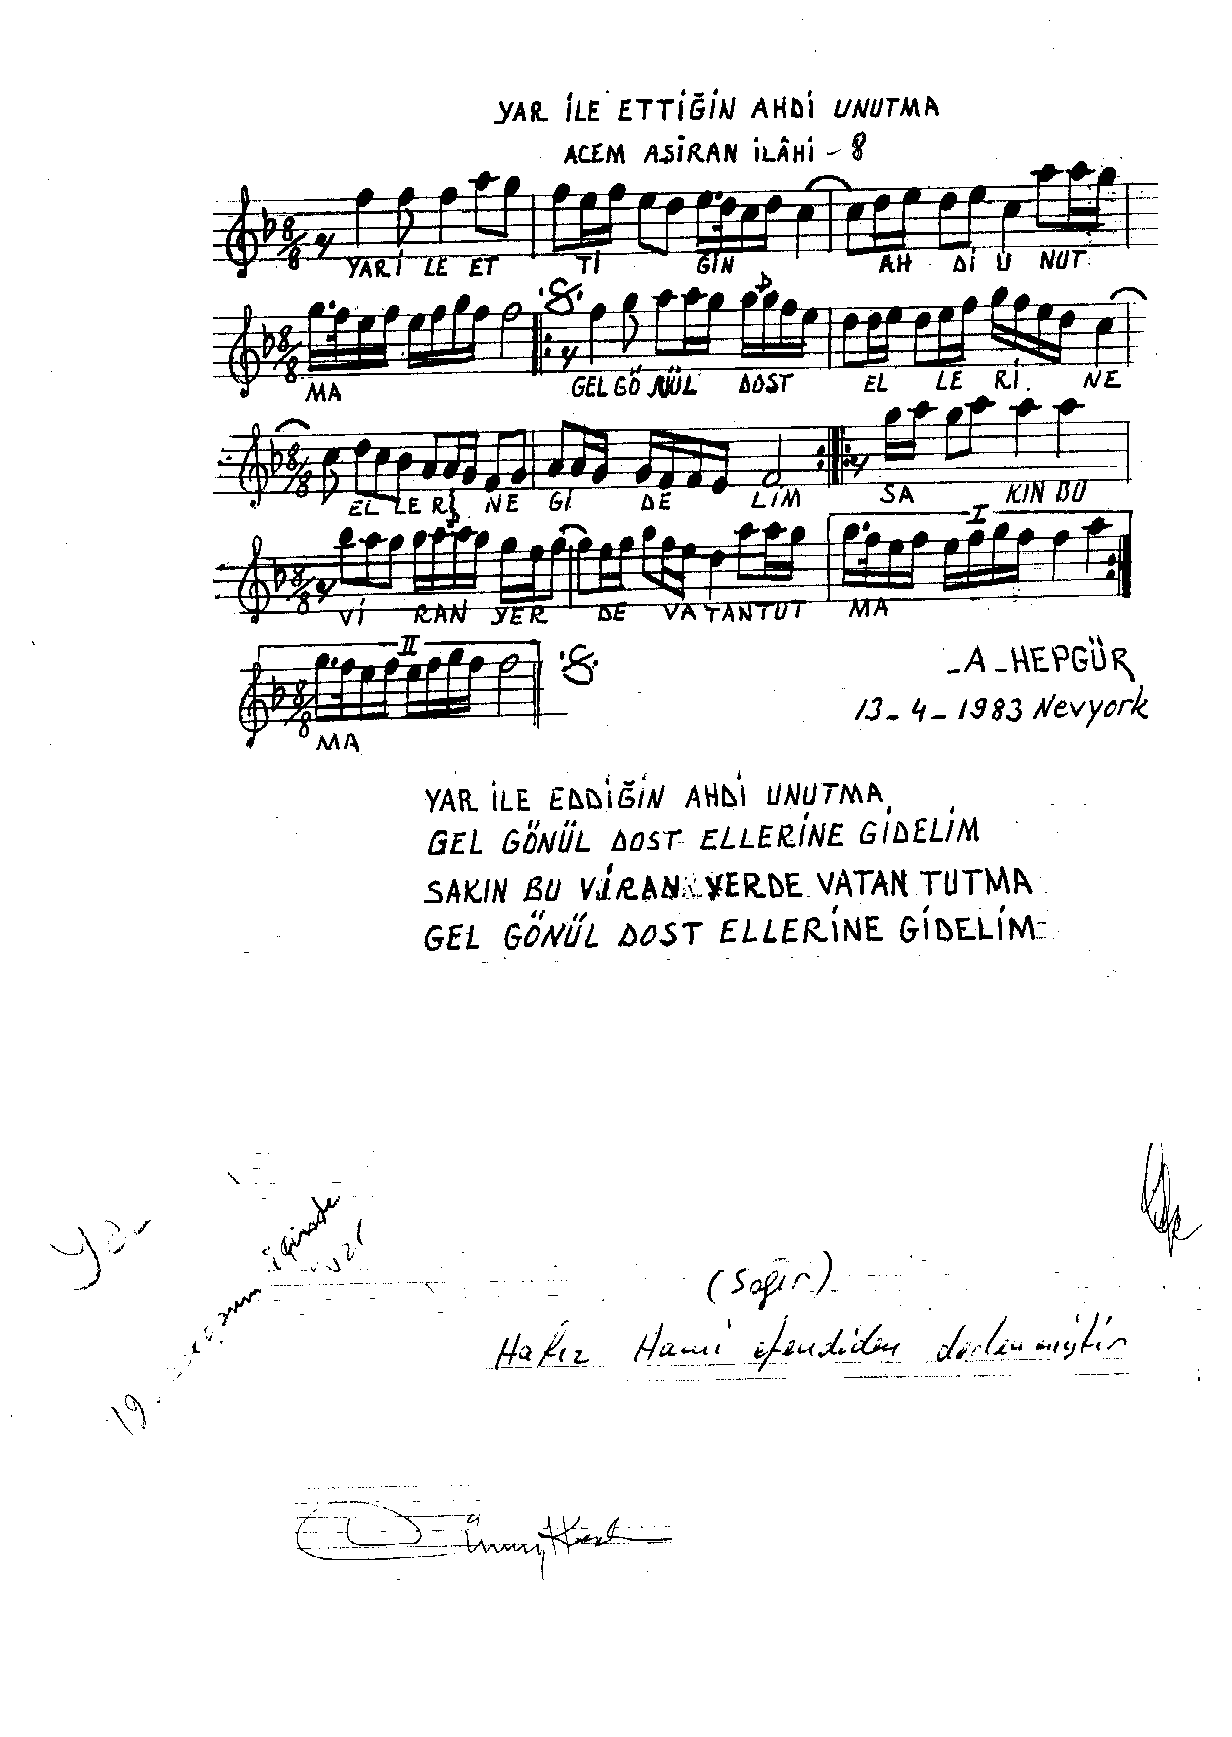 YAR İLE ETTİĞİN AHDİ UNUTMA
ACEM AŞİRAN İLÂHİ - 8
8/8 YAR İ LE ET Tİ GİN AH Dİ U NUT
8/8 MA GEL GÖ NÜL DOST EL LE Rİ NE
8/8 EL LE Rİ NE Gİ DE LİM SA KIN BU
I
8/8 Vİ RAN YER DE VA TAN TUT MA
II
8/8 MA
-A-HEPGÜR
13-4-1983 Nevyork
YAR İLE EDDİĞİN AHDİ UNUTMA
GEL GÖNÜL DOST ELLERİNE GİDELİM
SAKIN BU VİRAN YERDE VATAN TUTMA
GEL GÖNÜL DOST ELLERİNE GİDELİM
içinde
19
(Sağır)
Hafız Hami efendiden derlenmiştir